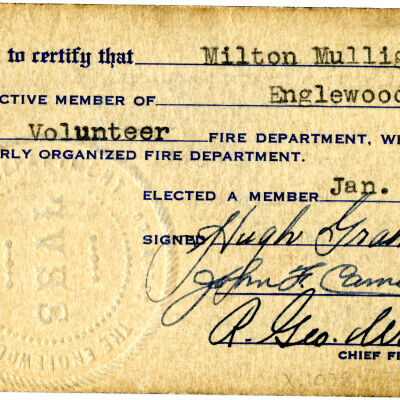 to certify that Milton Mullig
CTIVE MEMBER OF Englewood
Volunteer FIRE DEPARTMENT, WH
RLY ORGANIZED FIRE DEPARTMENT.
ELECTED A MEMBER Jan.
SIGNED Hugh Gra
John F. Cam
R. Geo.
CHIEF FI
SEAL
THE ENGLEWO